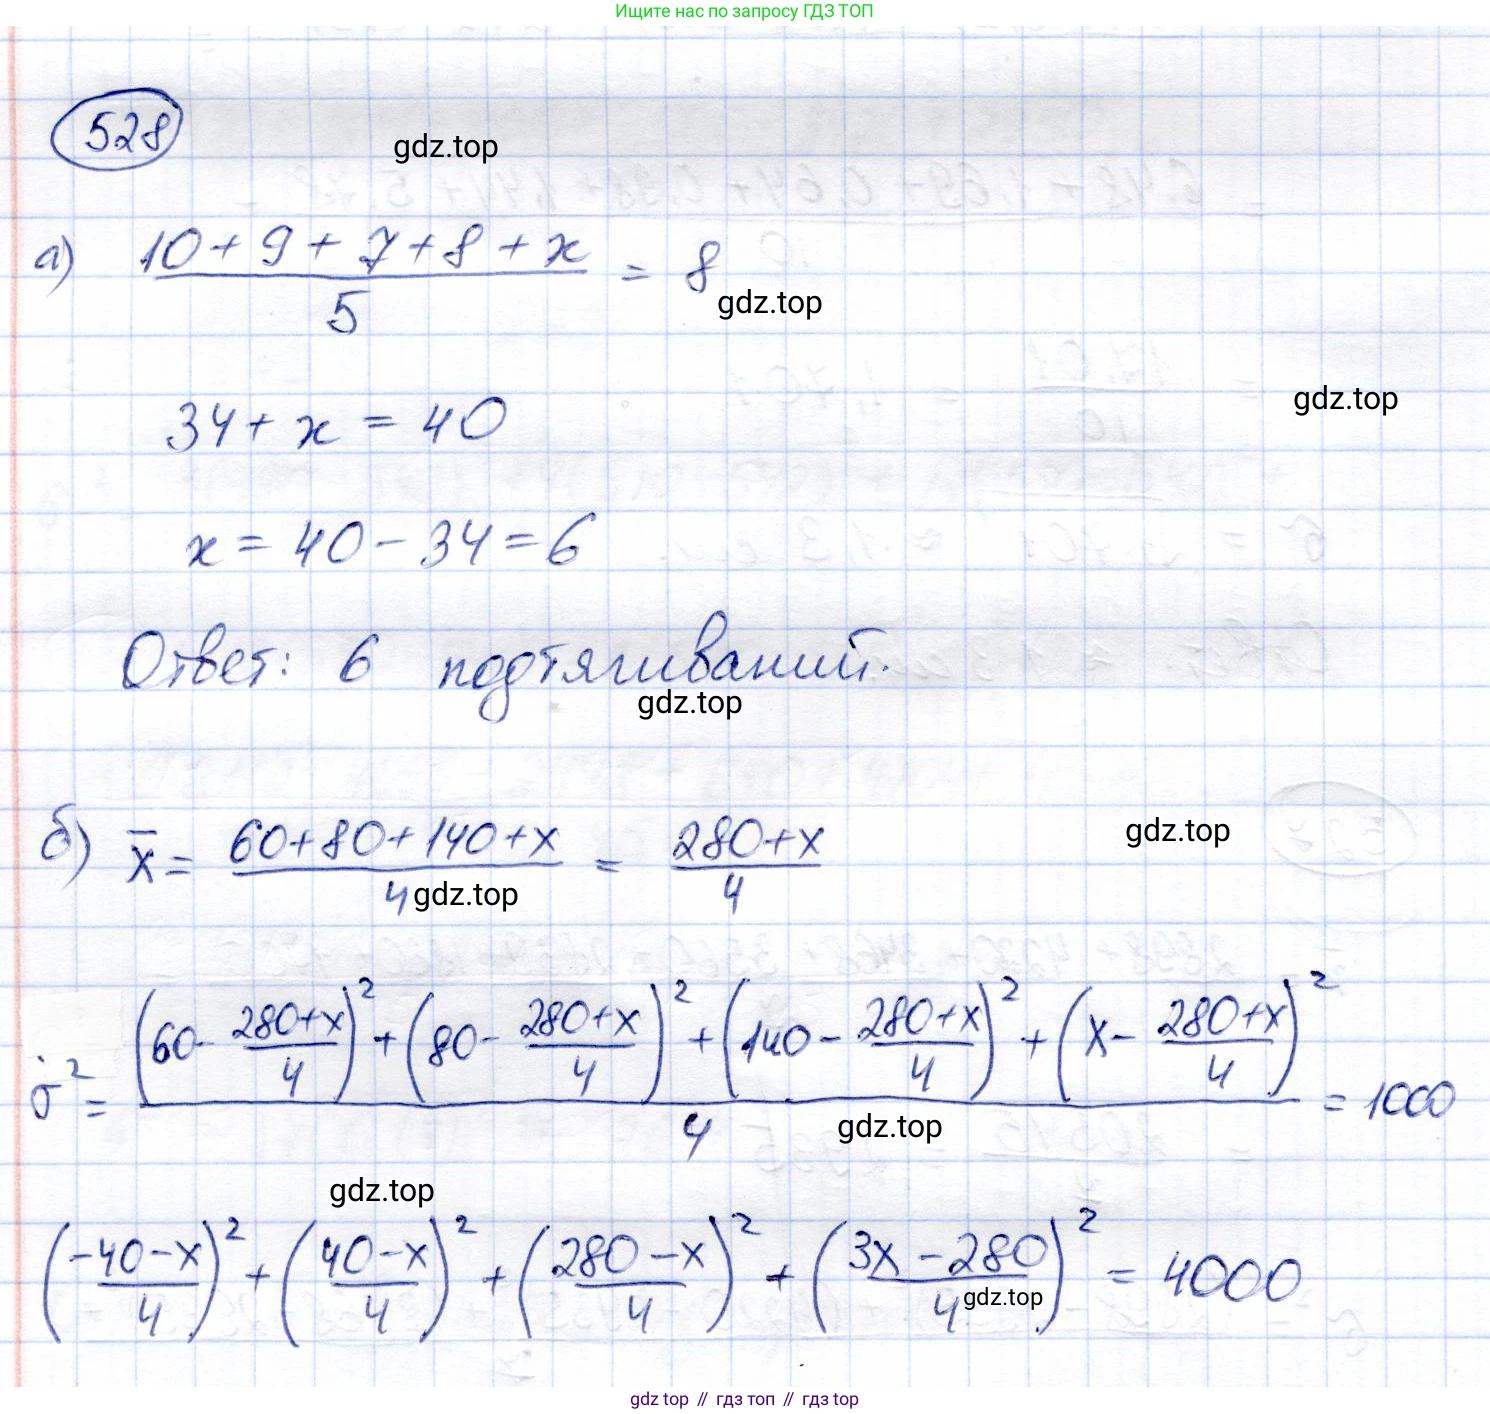 Ищите нас по запросу ГДЗ ТОП
528
gdz.top
а) (10 + 9 + 7 + 8 + x)/5 = 8
gdz.top
gdz.top
34 + x = 40
x = 40 - 34 = 6
Ответ: 6 подтягиваний.
gdz.top
б) x̄ = (60+80+140+x)/4 = (280+x)/4
gdz.top
gdz.top
σ² = ((60 - (280+x)/4)² + (80 - (280+x)/4)² + (140 - (280+x)/4)² + (x - (280+x)/4)²)/4 = 1000
gdz.top
gdz.top
((-40-x)/4)² + ((40-x)/4)² + ((280-x)/4)² + ((3x-280)/4)² = 4000
gdz.top
gdz top // гдз топ // гдз top